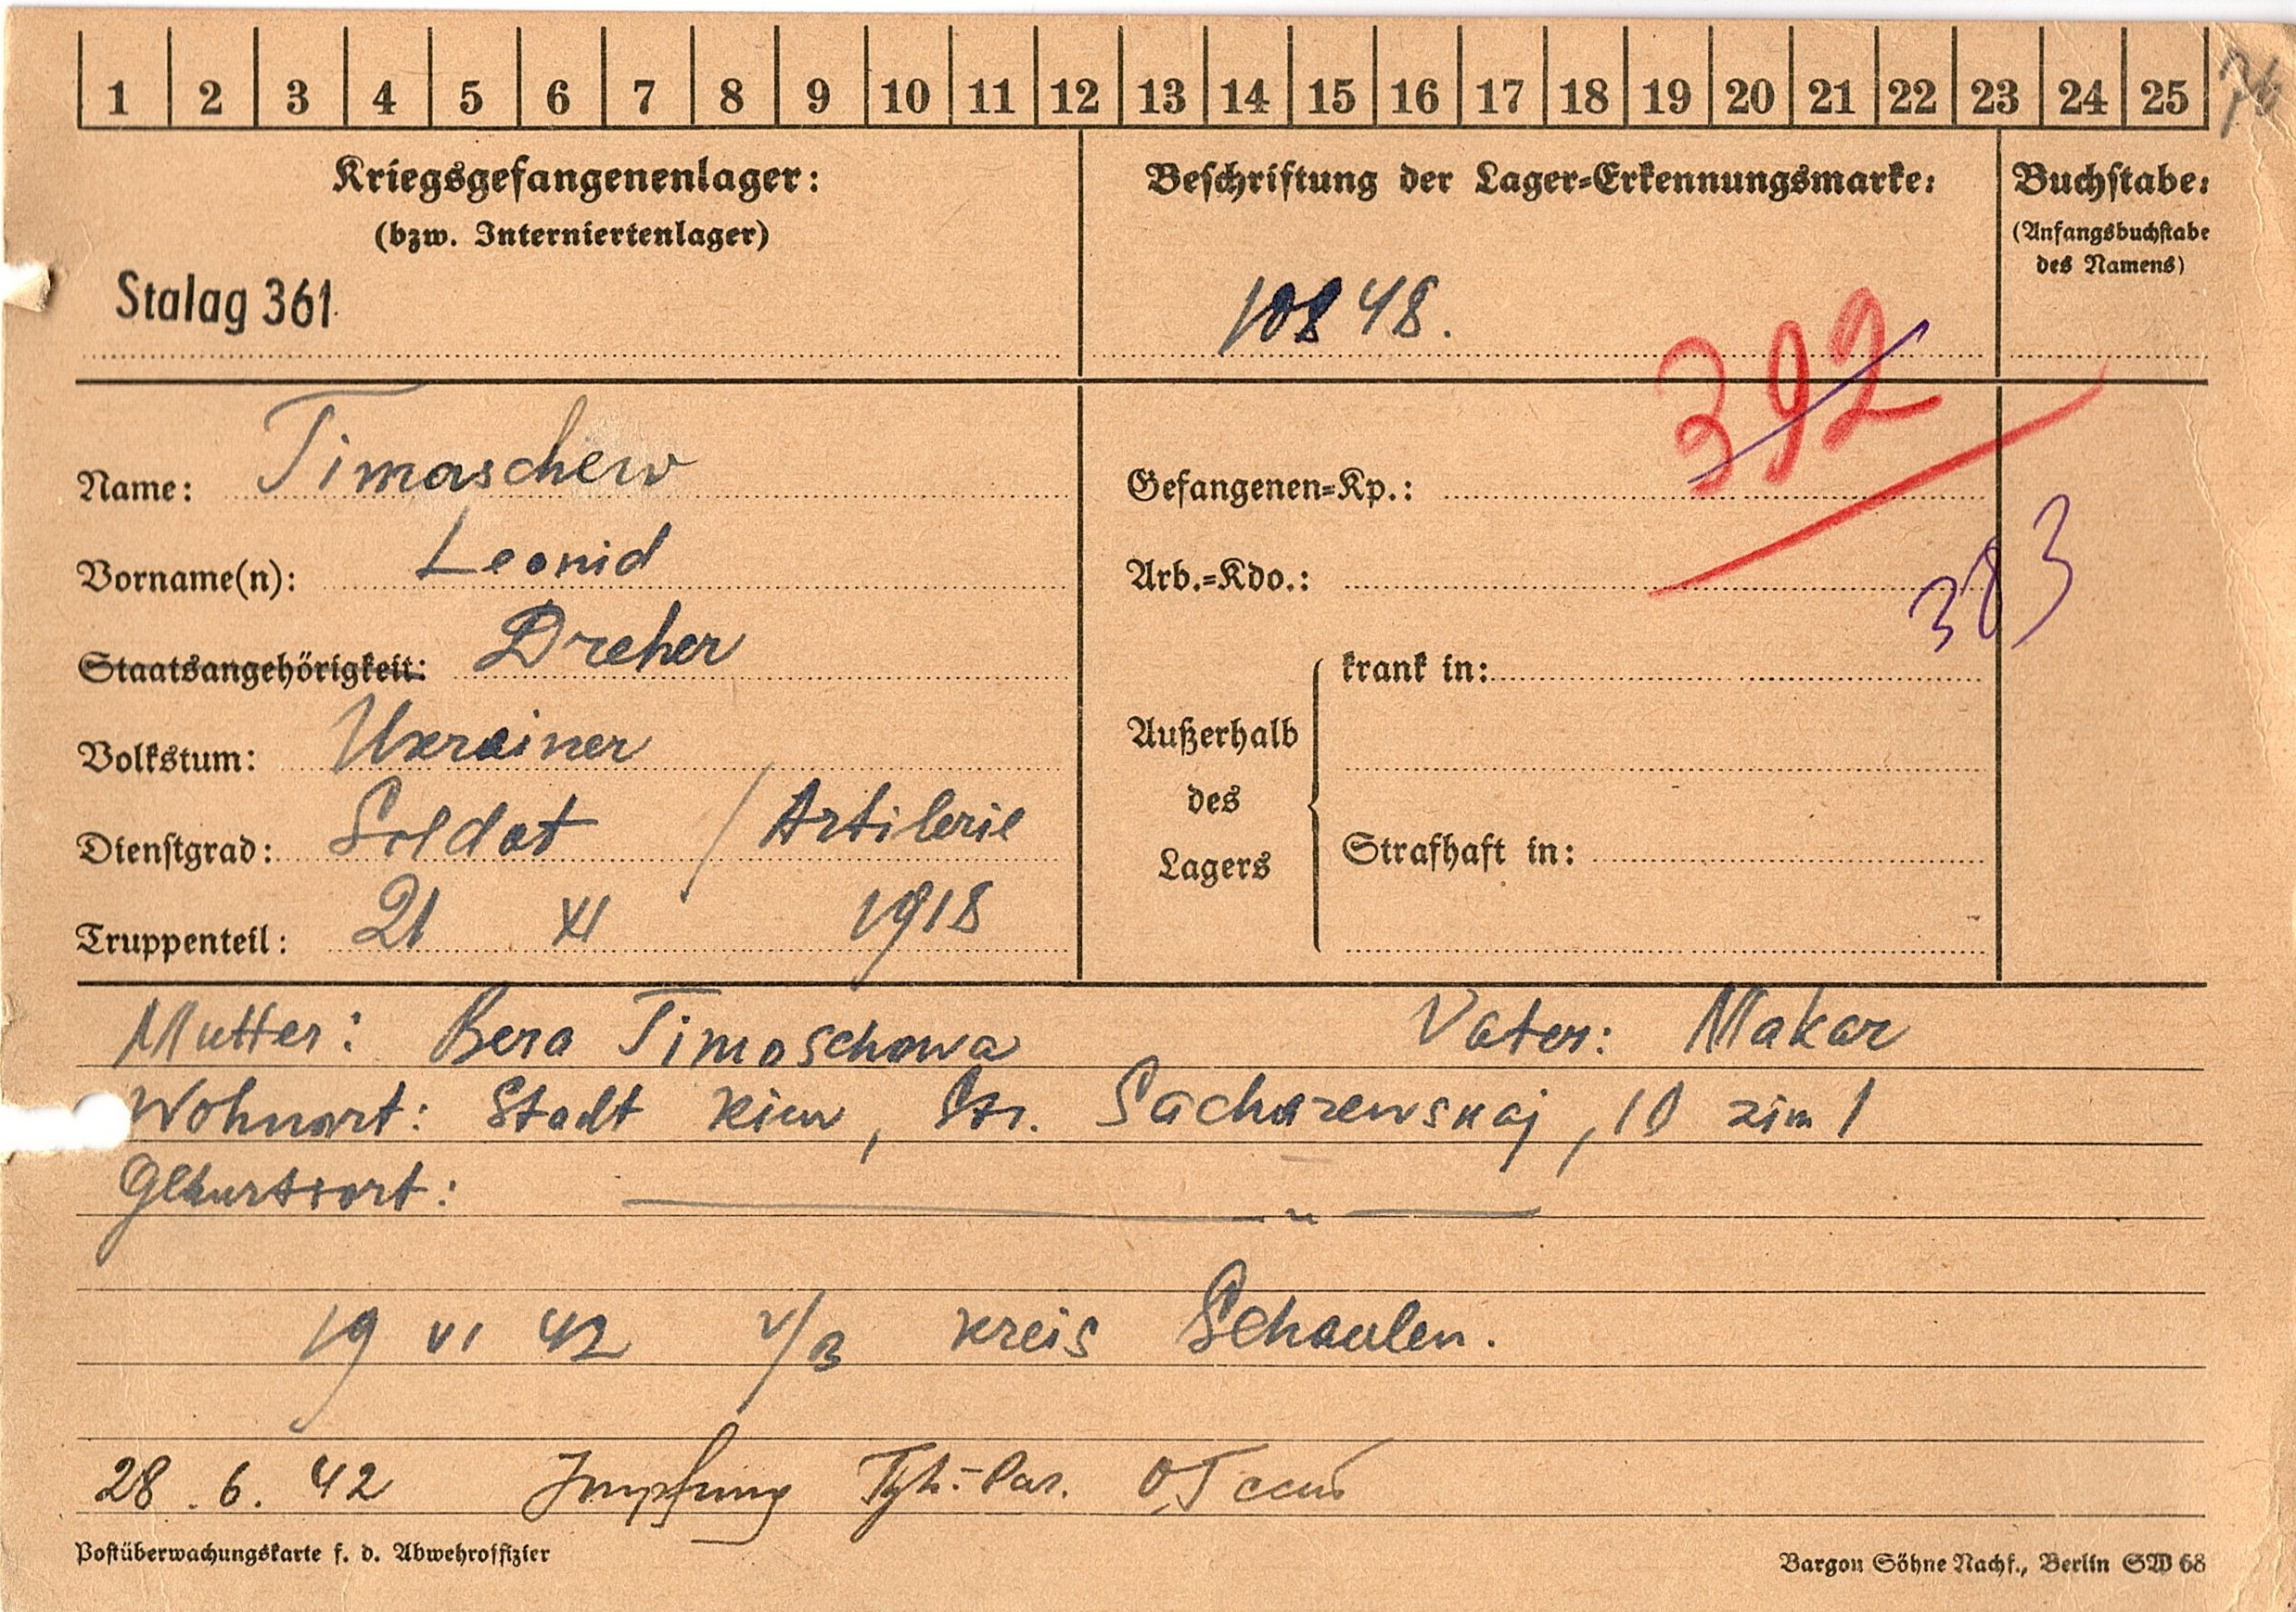 1 2 3 4 5 6 7 8 9 10 11 12 13 14 15 16 17 18 19 20 21 22 23 24 25
Kriegsgefangenenlager:
(bzw. Interniertenlager)
Stalag 361
Beschriftung der Lager-Erkennungsmarke:
10848.
Buchstabe:
(Anfangsbuchstabe
des Namens)
392
Name: Timoschew
Gefangenen-Kp.:
Vorname(n): Leonid
Arb.-Kdo.:
383
Staatsangehörigkeit: Dreher
krank in:
Volkstum: Ukrainer
Außerhalb
des
Lagers
Dienstgrad: Soldat / Artilerie
Strafhaft in:
Truppenteil: 21 XI 1918
Mutter: Bera Timoschowa Vater: Makar
Wohnort: Stadt Kiew, Str. Sacharewskaj, 10 zim 1
Geburtsort: — " —
19 VI 42 Kreis Schaulen.
28.6.42 Impfung Typh.-Par.
Postüberwachungskarte f. d. Abwehroffizier
Bargou Söhne Nachf., Berlin SW 68